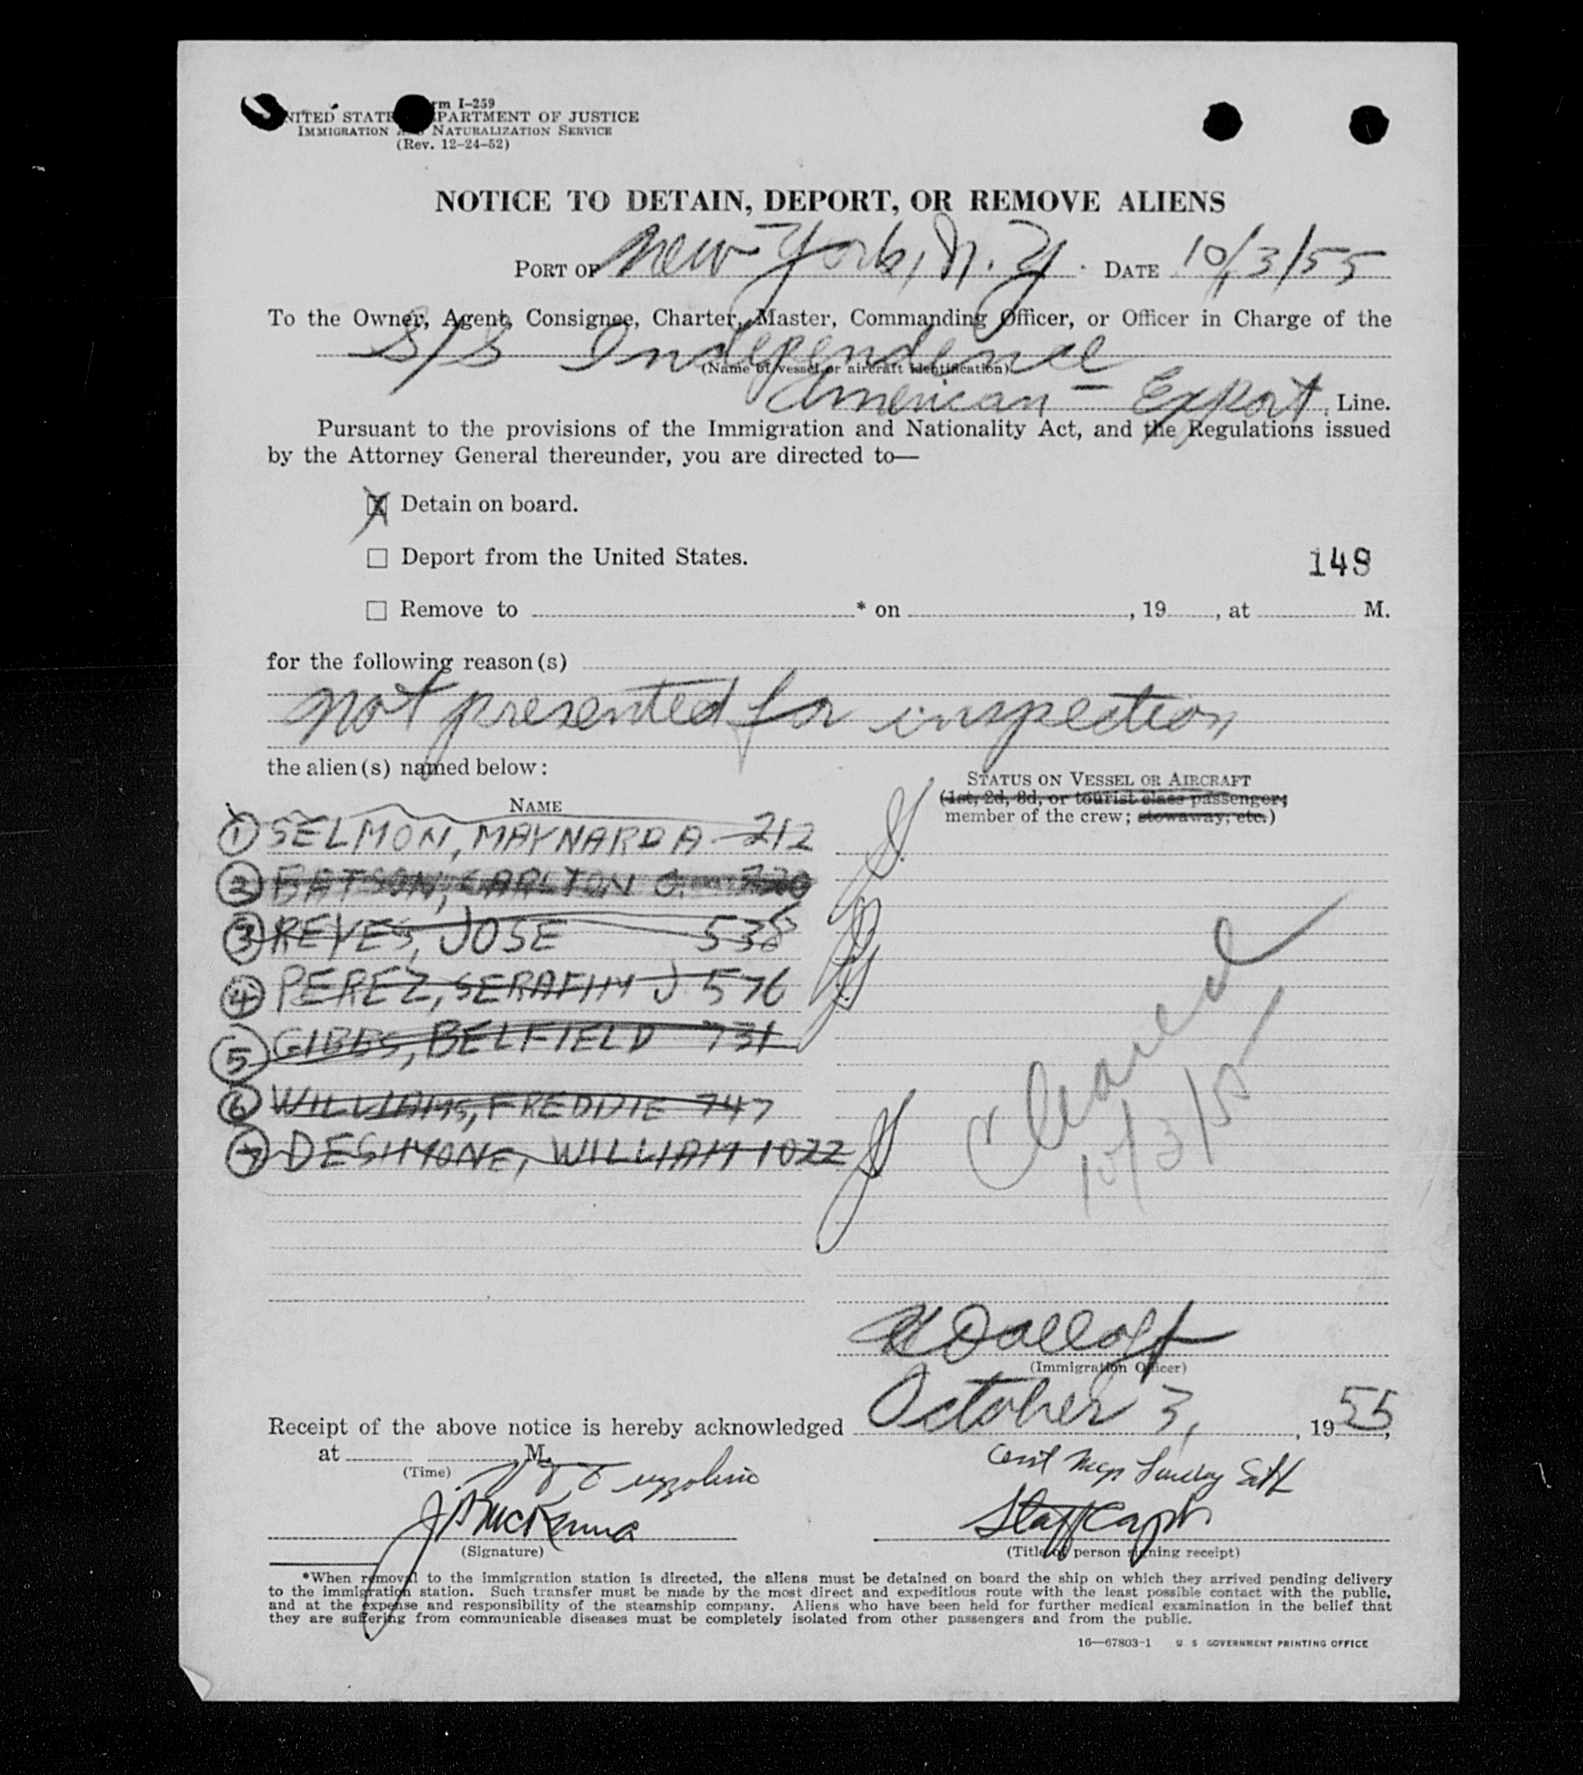 Form I-259
UNITED STATES DEPARTMENT OF JUSTICE
IMMIGRATION AND NATURALIZATION SERVICE
(Rev. 12-24-52)
NOTICE TO DETAIN, DEPORT, OR REMOVE ALIENS
PORT OF New York, N. Y. DATE 10/3/55
To the Owner, Agent, Consignee, Charter, Master, Commanding Officer, or Officer in Charge of the
S/S Independence
(Name of vessel or aircraft identification)
American - Export, Line.
Pursuant to the provisions of the Immigration and Nationality Act, and the Regulations issued
by the Attorney General thereunder, you are directed to—
X Detain on board.
☐ Deport from the United States.
148
☐ Remove to * on , 19 , at M.
for the following reason(s)
not presented for inspection
the alien(s) named below:
STATUS ON VESSEL OR AIRCRAFT
(1st, 2d, 3d, or tourist class passenger;
member of the crew; stowaway, etc.)
NAME
1 SELMON, MAYNARD A - 212
2 BATSON, CARLTON O. 720
3 REYES, JOSE 538
4 PEREZ, SERAFIM J 576
5 GIBBS, BELFIELD 731
6 WILLIAMS, FREDDIE 747
7 DESIMONE, WILLIAM 1022
Cleared
10/3/55
(Immigration Officer)
Receipt of the above notice is hereby acknowledged October 3, , 1955,
at M.
(Time)
J McKenna
Staff Capt.
(Signature)
(Title of person signing receipt)
*When removal to the immigration station is directed, the aliens must be detained on board the ship on which they arrived pending delivery
to the immigration station. Such transfer must be made by the most direct and expeditious route with the least possible contact with the public,
and at the expense and responsibility of the steamship company. Aliens who have been held for further medical examination in the belief that
they are suffering from communicable diseases must be completely isolated from other passengers and from the public.
16—67803-1 U. S. GOVERNMENT PRINTING OFFICE